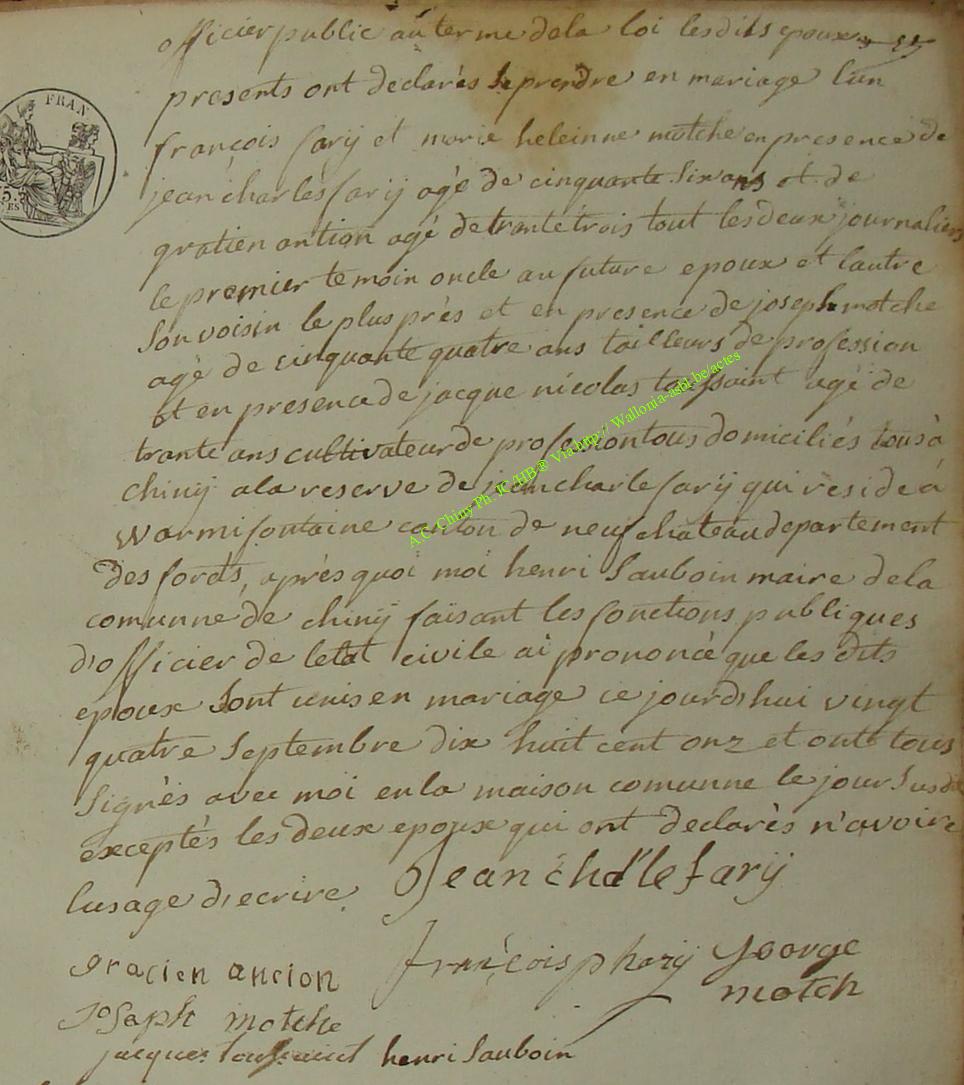 officier public au terme de la loi les dits epoux
presents ont declarés se prendre en mariage l'un
françois farÿ et marie heleinne motche en presence de
jean charles farÿ agé de cinquante six ans et de
gratien antion agé de trante trois tout les deux journaliers
le premier temoin oncle au future epoux et l'autre
son voisin le plus près et en presence de joseph motche
agé de cinquante quatre ans tailleurs de profession
et en presence de jacque nicolas toussaint agé de
trante ans cultivateur de profession tous domiciliés tous à
chinÿ a la reserve de jean charle farÿ qui reside à
warmifontaine canton de neufchâteau departement
des forêts, après quoi moi henri Sauboin maire de la
comunne de chinÿ faisant les fonctions publiques
d'officier de letat civile ai prononcé que les dits
epoux sont unis en mariage ce jourd'hui vingt
quatre Septembre dix huit cent onz et ont tous
Signés avec moi en la maison comunne le jour Susdit
exceptés les deux epoux qui ont declarès n'avoire
lusage d'ecrire.
Jean châ'le farÿ
gracien ancion
françois pharÿ
George
motch
Joseph motche
jacques toussaint
henri Sauboin
FRAN
A.C. Chiny Ph. JC/HB® Via http// Wallonia-asbl.be/actes